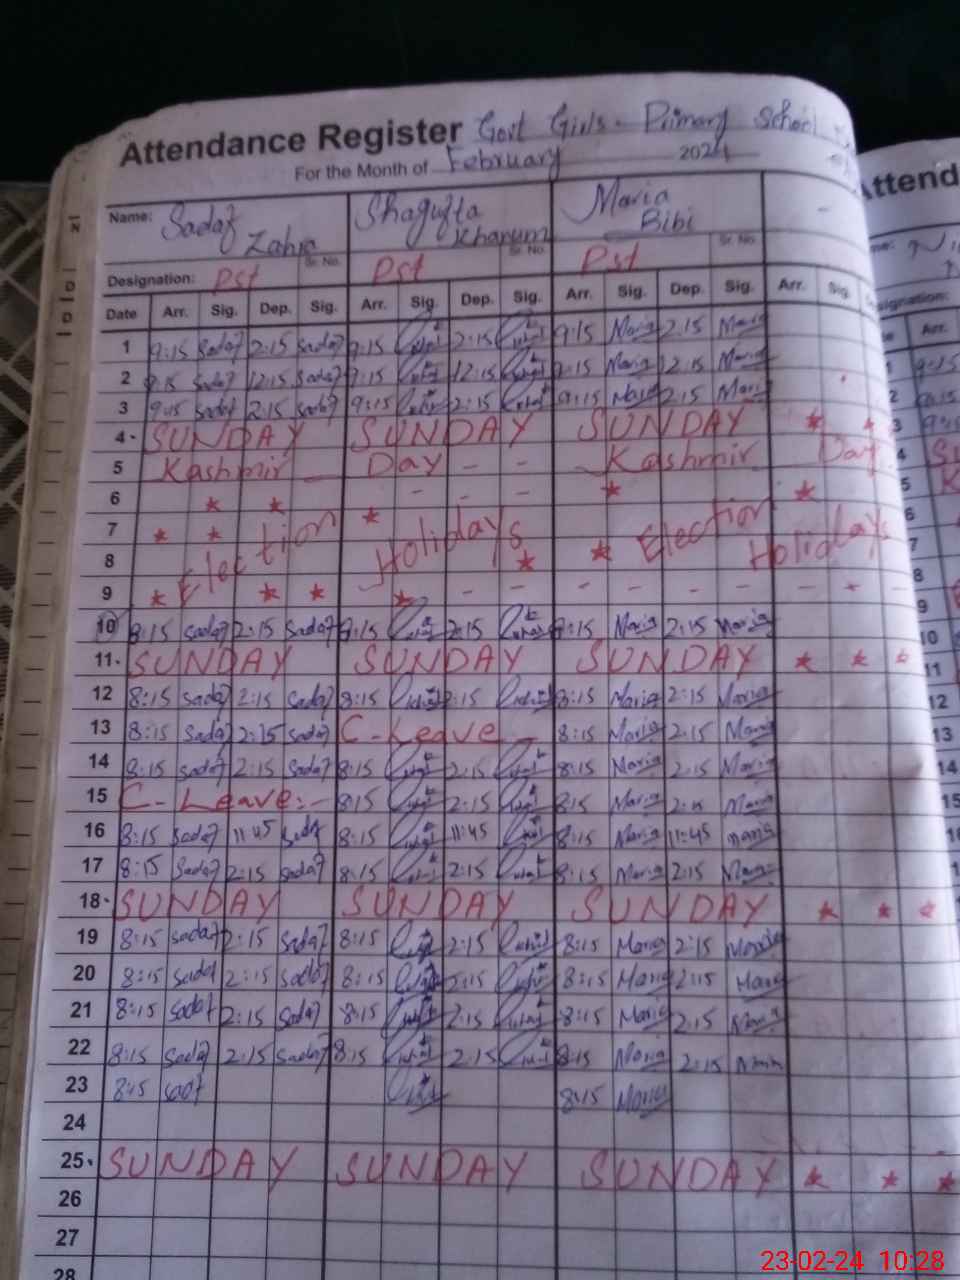 Attendance Register Govt Girls - Primary School
For the Month of February 2024
Name: Sadaf Zahra Shagufta Khanum Maria Bibi
Sr. No. Sr. No. Sr. No.
Designation: Pst Pst Pst
Date Arr. Sig. Dep. Sig. Arr. Sig. Dep. Sig. Arr. Sig. Dep. Sig. Arr. Sig.
1 9:15 Sadaf 2:15 Sadaf 9:15 2:15 9:15 Maria 2:15 Maria
2 9:15 Sadaf 12:15 Sadaf 9:15 12:15 9:15 Maria 12:15 Maria
3 9:15 Sadaf 2:15 Sadaf 9:15 2:15 9:15 Maria 2:15 Maria
4 SUNDAY SUNDAY SUNDAY
5 Kashmir Day - - Kashmir Day
6 - - -
7 Election Holidays Election Holidays
8
9
10 8:15 Sadaf 2:15 Sadaf 8:15 2:15 8:15 Maria 2:15 Maria
11 SUNDAY SUNDAY SUNDAY
12 8:15 Sadaf 2:15 Sadaf 8:15 2:15 8:15 Maria 2:15 Maria
13 8:15 Sadaf 2:15 Sadaf C-Leave 8:15 Maria 2:15 Maria
14 8:15 Sadaf 2:15 Sadaf 8:15 2:15 8:15 Maria 2:15 Maria
15 C-Leave:- 8:15 2:15 8:15 Maria 2:15 Maria
16 8:15 Sadaf 11:45 Sadaf 8:15 11:45 8:15 Maria 11:45 Maria
17 8:15 Sadaf 2:15 Sadaf 8:15 2:15 8:15 Maria 2:15 Maria
18 SUNDAY SUNDAY SUNDAY
19 8:15 Sadaf 2:15 Sadaf 8:15 2:15 8:15 Maria 2:15 Maria
20 8:15 Sadaf 2:15 Sadaf 8:15 2:15 8:15 Maria 2:15 Maria
21 8:15 Sadaf 2:15 Sadaf 8:15 2:15 8:15 Maria 2:15 Maria
22 8:15 Sadaf 2:15 Sadaf 8:15 2:15 8:15 Maria 2:15
23 8:15 Sadaf 8:15 Maria
24
25 SUNDAY SUNDAY SUNDAY
26
27
28
23-02-24 10:28